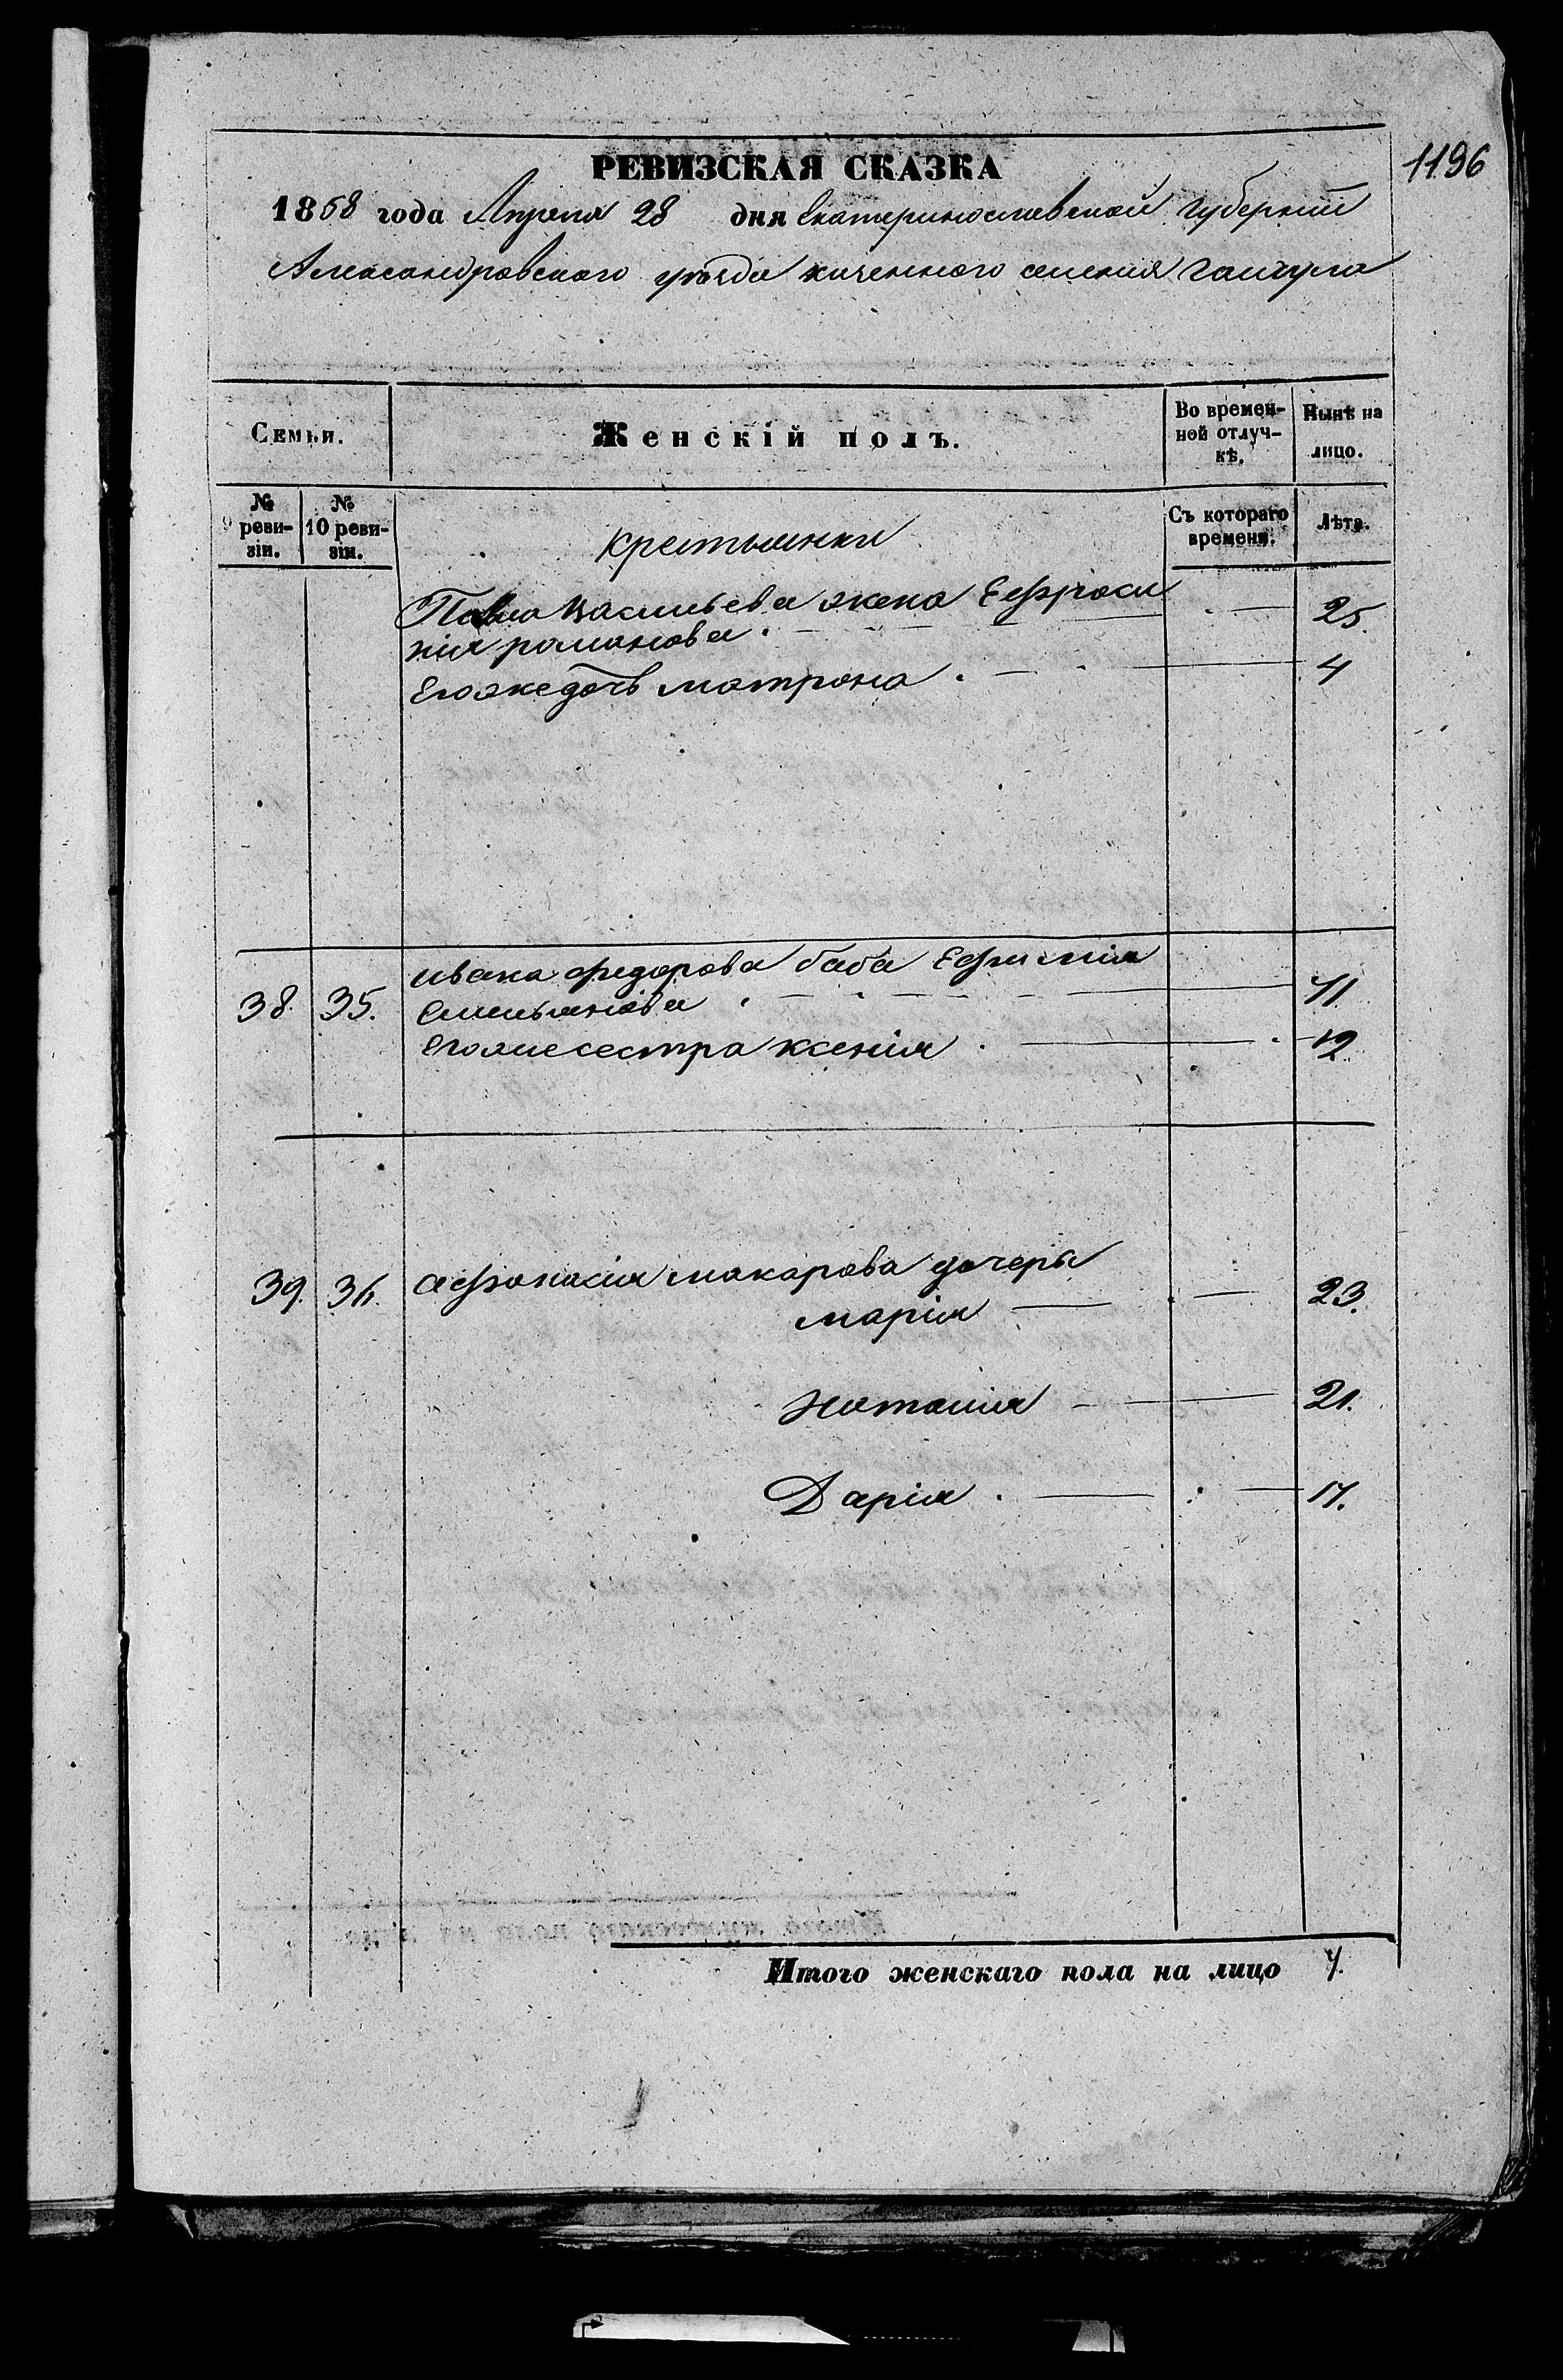 1196
РЕВИЗСКАЯ СКАЗКА
1858 года Апреля 28 дня Екатеринославской Губернии
Александровского уезда казенного селения Гайчула
Семьи.
Женскій полъ.
Во времен-
ной отлуч-
кѣ.
Нынѣ на
лицо.
№
9 реви-
зіи.
№
10 реви-
зіи.
Съ котораго
времени.
Лѣта.
крестьянки
Павла Васильева жена Ефроси 25.
нія романова
Его же дочь матрона 4
ивана федорова баба Ефимія
38. 35. Емельянова 71
Его же сестра ксенія 12
39. 36. афанасия макарова дочери
марія 23.
наталия 21.
Дарія 17.
Итого женскаго пола на лицо 7.